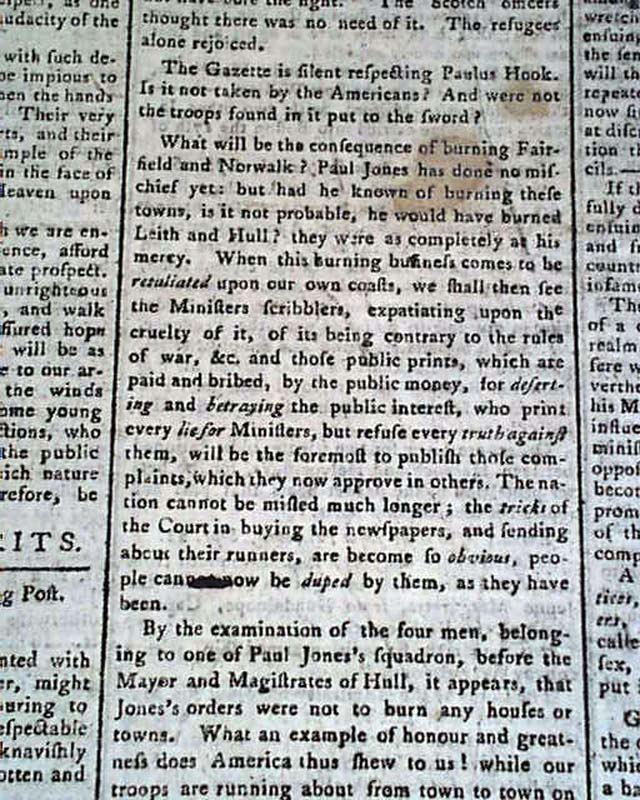 udacity of the
with such de-
be impious to
hen the hands
Their very
rts, and their
mple of the
in the face of
Heaven upon
h we are en-
ence, afford
ate profpect.
unrighteous
, and walk
ffured hope
will be as
e to our ar-
the winds
ome young
ctions, who
the public
ich nature
refore, be
ITS.
g Poft.
nted with
er, might
uring to
efpectable
knavifhly
otten and
The Scotch officers
thought there was no need of it. The refugees
alone rejoiced.
The Gazette is filent refpecting Paulus Hook.
Is it not taken by the Americans? And were not
the troops found in it put to the fword?
What will be the confequence of burning Fair-
field and Norwalk? Paul Jones has done no mif-
chief yet: but had he known of burning thefe
towns, is it not probable, he would have burned
Leith and Hull? they were as completely at his
mercy. When this burning bufinefs comes to be
retaliated upon our own coafts, we fhall then fee
the Minifters fcribblers, expatiating upon the
cruelty of it, of its being contrary to the rules
of war, &c. and thofe public prints, which are
paid and bribed, by the public money, for defert-
ing and betraying the public intereft, who print
every lie for Minifters, but refufe every truth againft
them, will be the foremoft to publifh thofe com-
plaints, which they now approve in others. The na-
tion cannot be mifled much longer; the tricks of
the Court in buying the newfpapers, and fending
about their runners, are become fo obvious, peo-
ple cannot now be duped by them, as they have
been.
By the examination of the four men, belong-
ing to one of Paul Jones's fquadron, before the
Mayor and Magiftrates of Hull, it appears, that
Jones's orders were not to burn any houfes or
towns. What an example of honour and great-
nefs does America thus fhew to us! while our
troops are running about from town to town on
wretch
enfuing
the fen
will th
repeate
now fi
at difc
tion th
cils.—
If t
fully d
enfuin
and f
count
infam
Th
of a
realm
fere w
verth
his M
influe
minif
oppo
becor
prom
of th
comp
A
tices,
ers,
calle
fex,
put i
G
the
whic
a ba